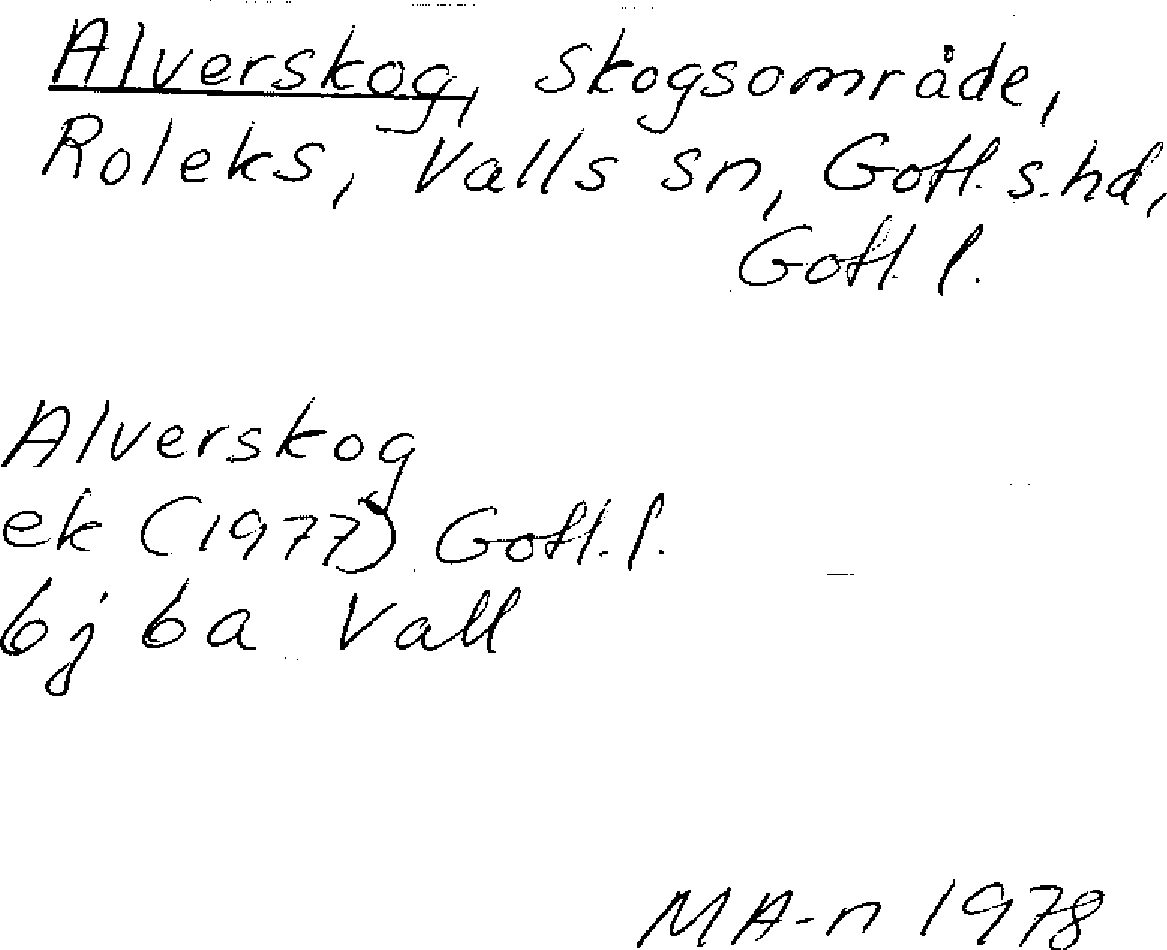 Alverskog, skogsområde,
Roleks, Valls sn, Gotl. s. hd,
Gotl. l.
Alverskog
ek (1977) Gotl. l.
bj ba Vall
MA-n 1978